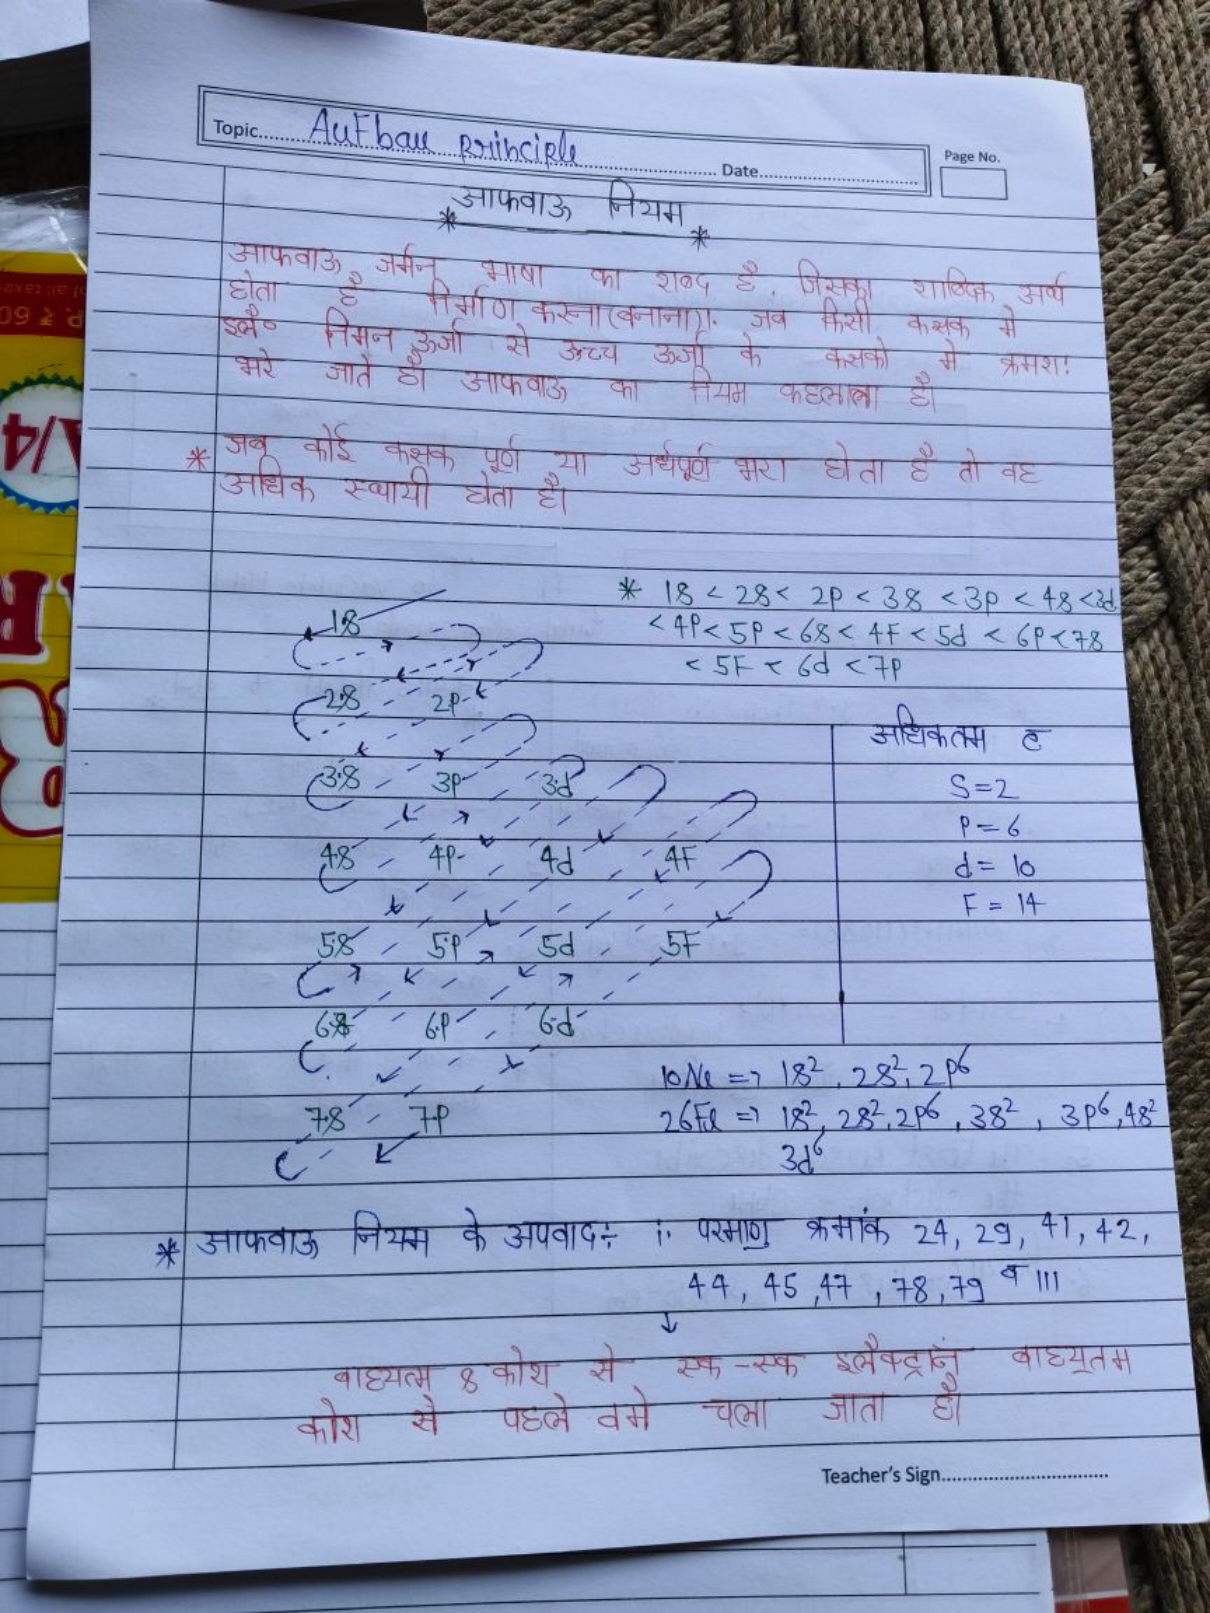 Topic..... Aufbau principle ..... Date.....
Page No.
आफवाऊ नियम
आफवाऊ जर्मन भाषा का शब्द है, जिसका शाब्दिक अर्थ
होता है निर्माण करना (बनाना)। जब किसी कक्षक मे
इलै० निमन ऊर्जा से ऊच्च ऊर्जा के कसको मे क्रमश:
भरे जाते है। आफवाऊ का नियम कहलाता है।
* जब कोई कक्षक पूर्ण या अर्धपूर्ण भरा होता है तो वह
अधिक स्थायी होता है।
* 1s < 2s < 2p < 3s < 3p < 4s < 3d
< 4p < 5p < 6s < 4F < 5d < 6p < 7s
< 5F < 6d < 7p
1s
2s 2p
3s 3p 3d
4s 4p 4d 4F
5s 5p 5d 5F
6s 6p 6d
7s 7p
अधिकतम e
S=2
P=6
d=10
F=14
10Ne => 1s², 2s², 2p⁶
26Fe => 1s², 2s², 2p⁶, 3s², 3p⁶, 4s²
3d⁶
* आफवाऊ नियम के अपवाद÷ i. परमाणु क्रमांक 24, 29, 41, 42,
44, 45, 47, 78, 79 व 111
↓
बाहयत्म s कोश से एक-एक इलैक्ट्रान बाहयतम
कोश से पहले वमे चला जाता है।
Teacher's Sign.....